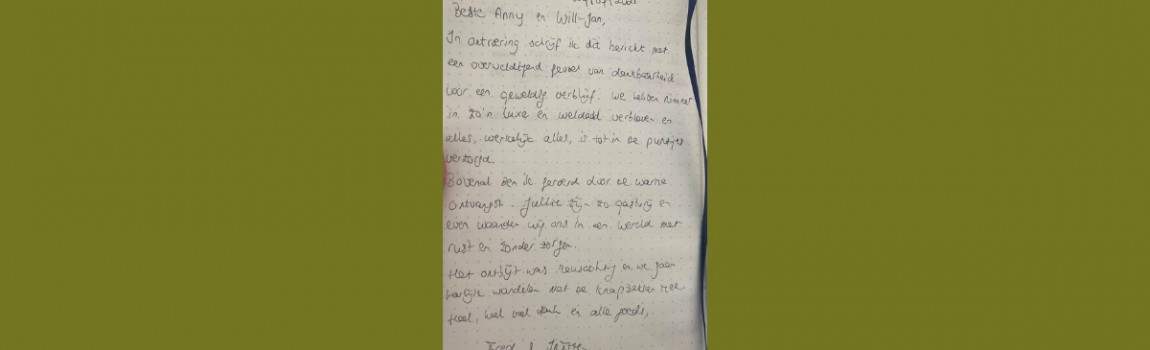 Beste Anny en Will-Jan,
In ontroering schrijf ik dit bericht met
een overweldigend gevoel van dankbaarheid
voor een geweldig verblijf. We hebben nimmer
in zo'n luxe en weldaad verbleven en
alles, werkelijk alles, is tot in de puntjes
verzorgd.
Bovenal ben ik geroerd door de warme
ontvangst. Jullie zijn zo gastvrij en
even waanden wij ons in een wereld met
rust en zonder zorgen.
Het ontbijt was reusachtig en we gaan
heerlijk wandelen met de knapzakken mee.
Heel, heel veel dank en alle goeds,